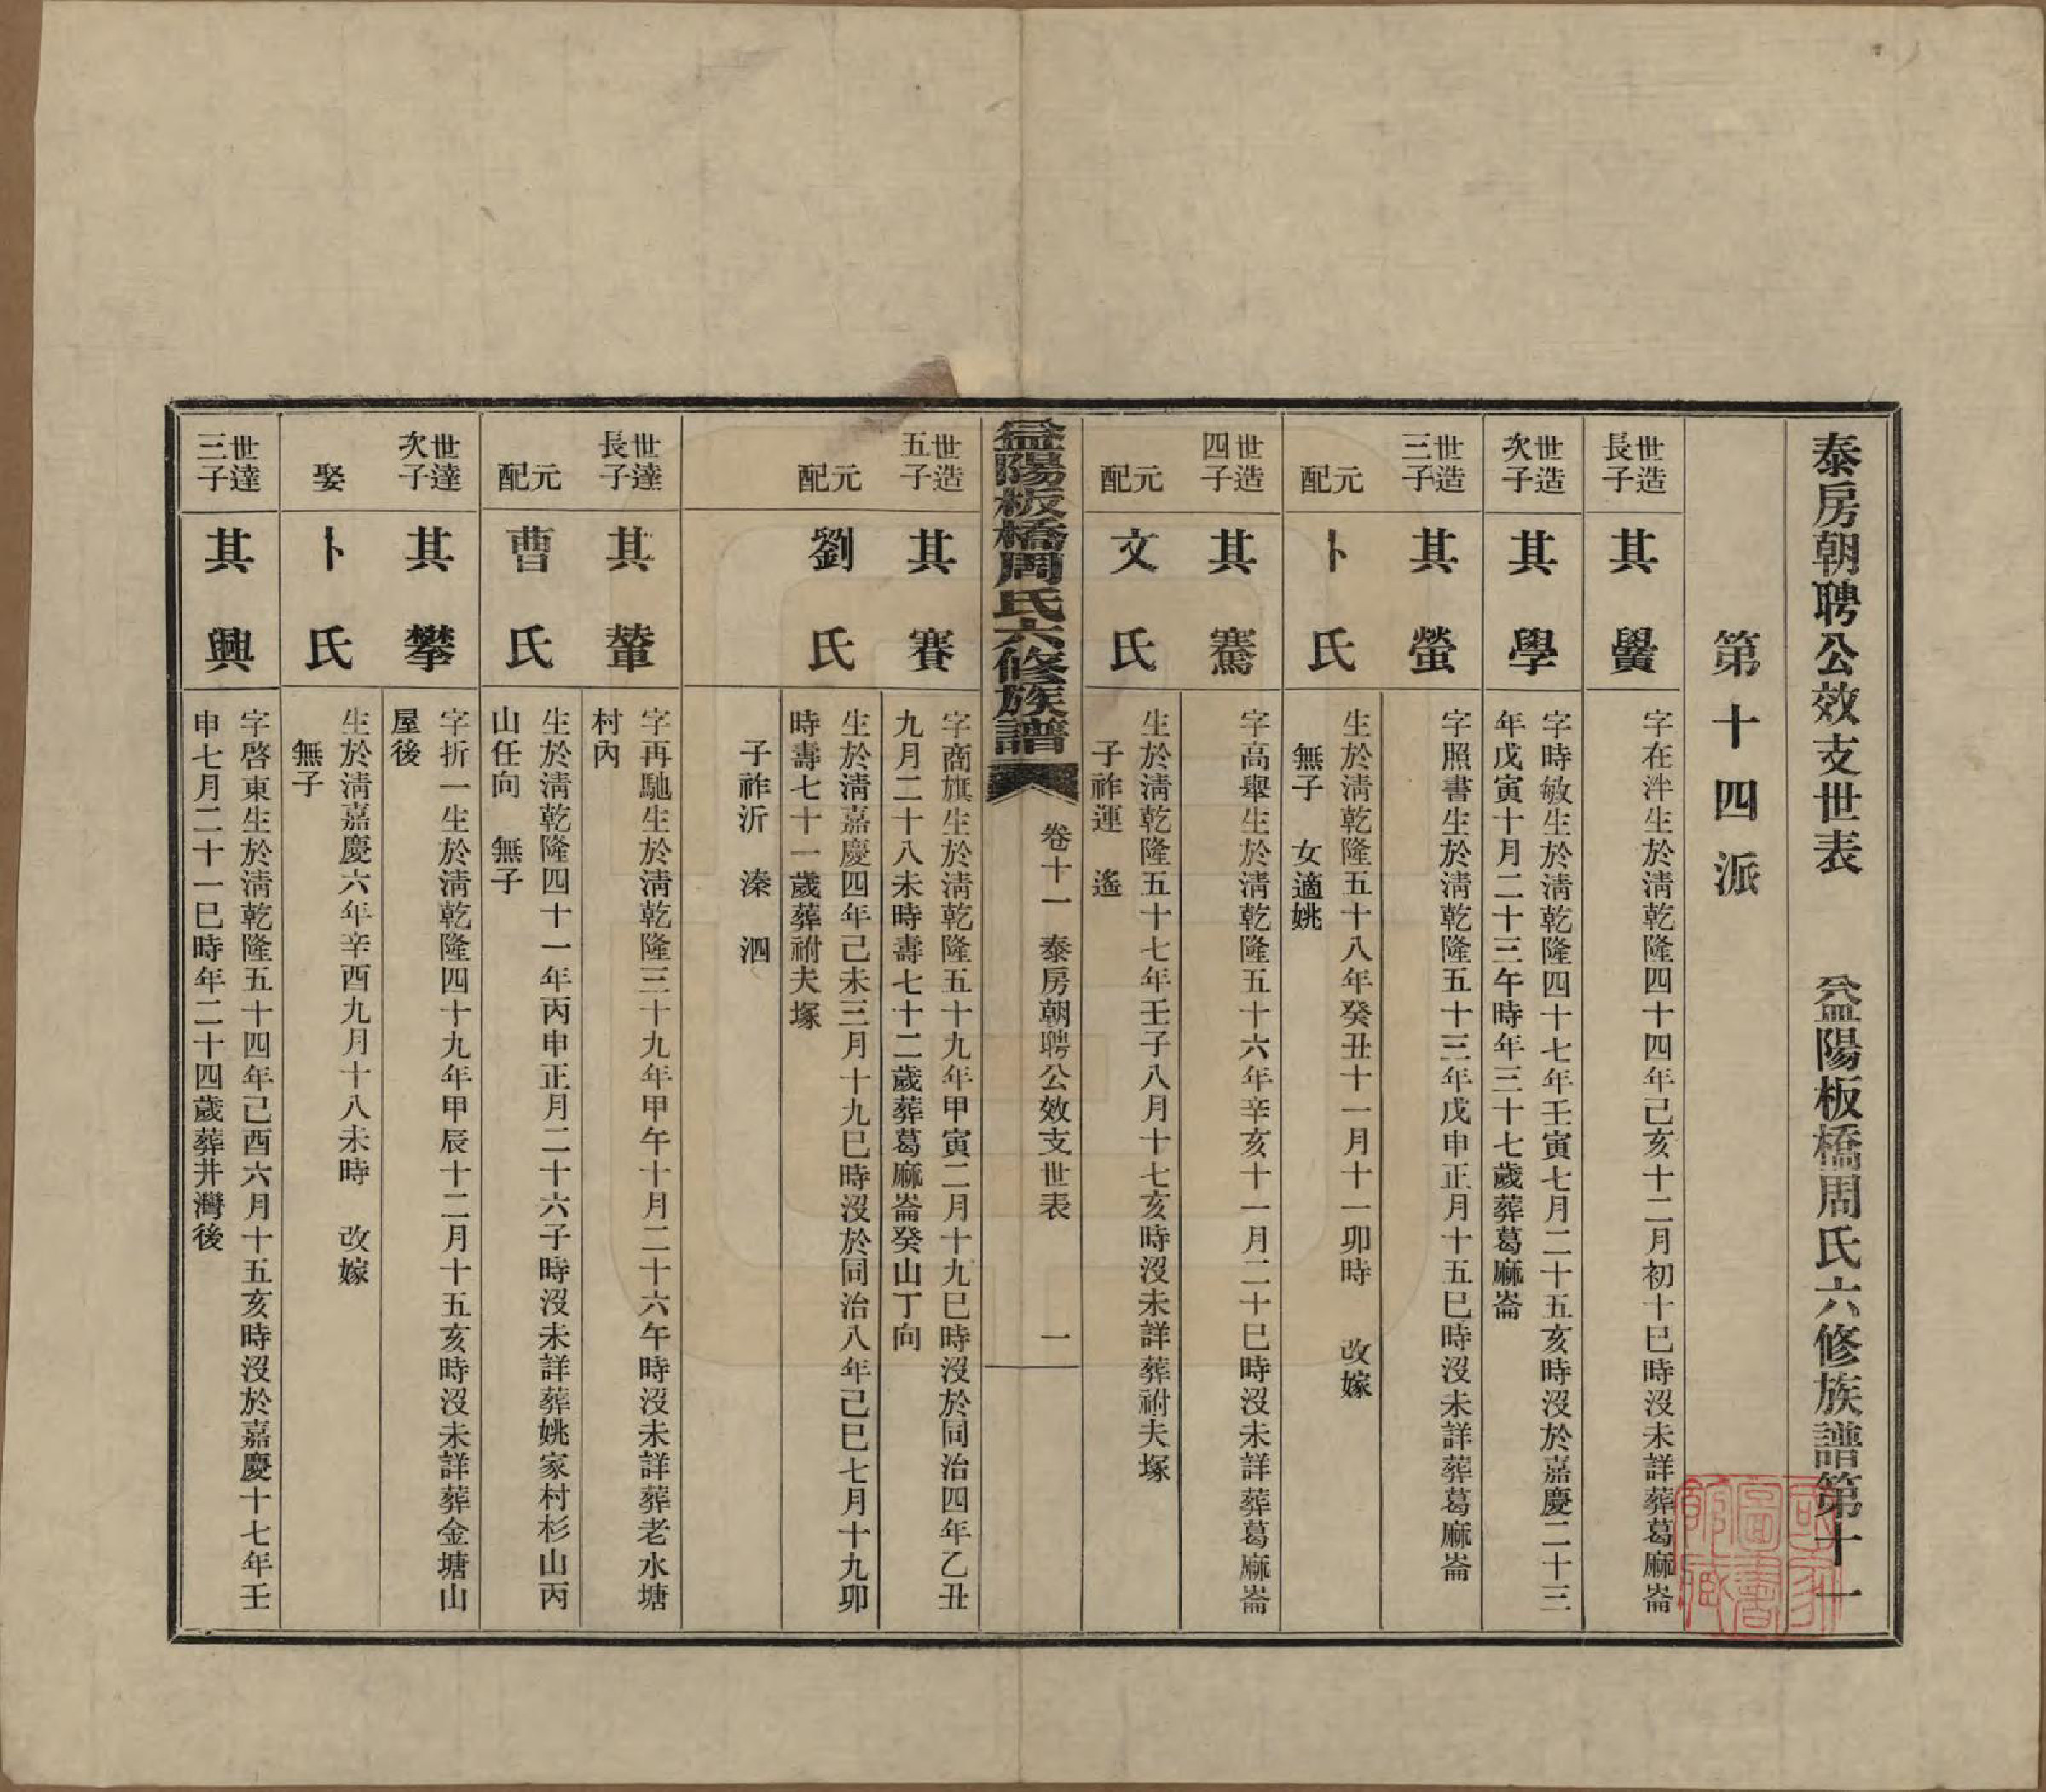 泰房朝聘公效支世表　益陽板橋周氏六修族譜第十一
國家圖書館藏
第十四派
世造長子
其黌
字在泮生於清乾隆四十四年己亥十二月初十巳時沒未詳葬葛麻崙
世造次子
其學
字時敏生於清乾隆四十七年壬寅七月二十五亥時沒於嘉慶二十三
年戊寅十月二十三午時年三十七歲葬葛麻崙
世造三子
其螢
字照書生於清乾隆五十三年戊申正月十五巳時沒未詳葬葛麻崙
元配
卜氏
生於清乾隆五十八年癸丑十一月十一卯時　改嫁
無子　女適姚
世造四子
其騫
字高舉生於清乾隆五十六年辛亥十一月二十巳時沒未詳葬葛麻崙
元配
文氏
生於清乾隆五十七年壬子八月十七亥時沒未詳葬祔夫塚
子祚運　遙
益陽板橋周氏六修族譜
卷十一　泰房朝聘公效支世表　一
世造五子
其賽
字商旗生於清乾隆五十九年甲寅二月十九巳時沒於同治四年乙丑
九月二十八未時壽七十二歲葬葛麻崙癸山丁向
元配
劉氏
生於清嘉慶四年己未三月十九巳時沒於同治八年己巳七月十九卯
時壽七十一歲葬祔夫塚
子祚沂　溱　泗
世達長子
其輦
字再馳生於清乾隆三十九年甲午十月二十六午時沒未詳葬老水塘
村內
元配
曹氏
生於清乾隆四十一年丙申正月二十六子時沒未詳葬姚家村杉山丙
山任向　無子
世達次子
其攀
字折一生於清乾隆四十九年甲辰十二月十五亥時沒未詳葬金塘山
屋後
娶
卜氏
生於清嘉慶六年辛酉九月十八未時　改嫁
無子
世達三子
其興
字啓東生於清乾隆五十四年己酉六月十五亥時沒於嘉慶十七年壬
申七月二十一巳時年二十四歲葬井灣後